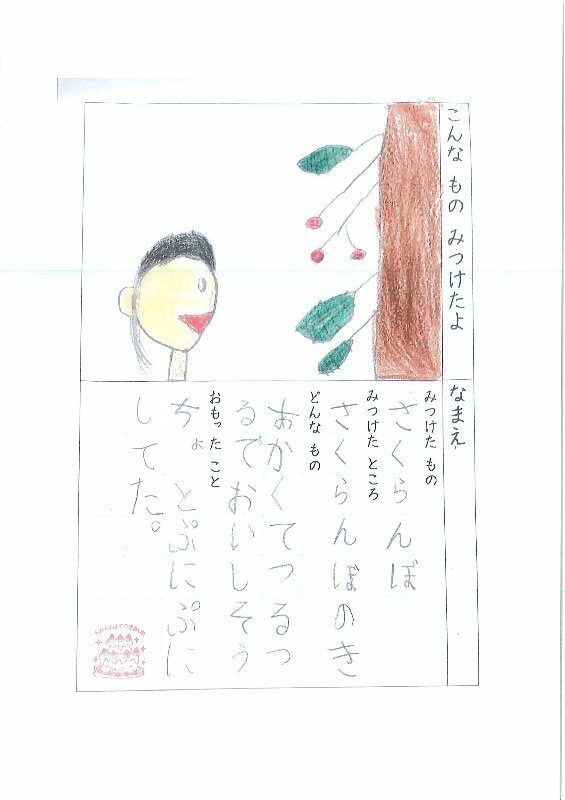 こんな もの みつけたよ
なまえ
みつけた もの
さくらんぼ
みつけた ところ
さくらんぼのき
どんな もの
あかくてつるつ
るでおいしそう
おもった こと
ちょっとぷにぷに
してた。